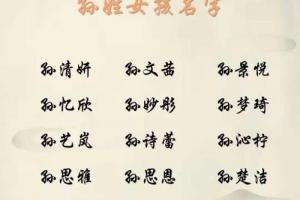 孙姓女孩名字
孙清妍 孙文茜 孙景悦
孙忆欣 孙妙彤 孙梦琦
孙艺岚 孙诗蕾 孙沁柠
孙思雅 孙思恩 孙楚洁